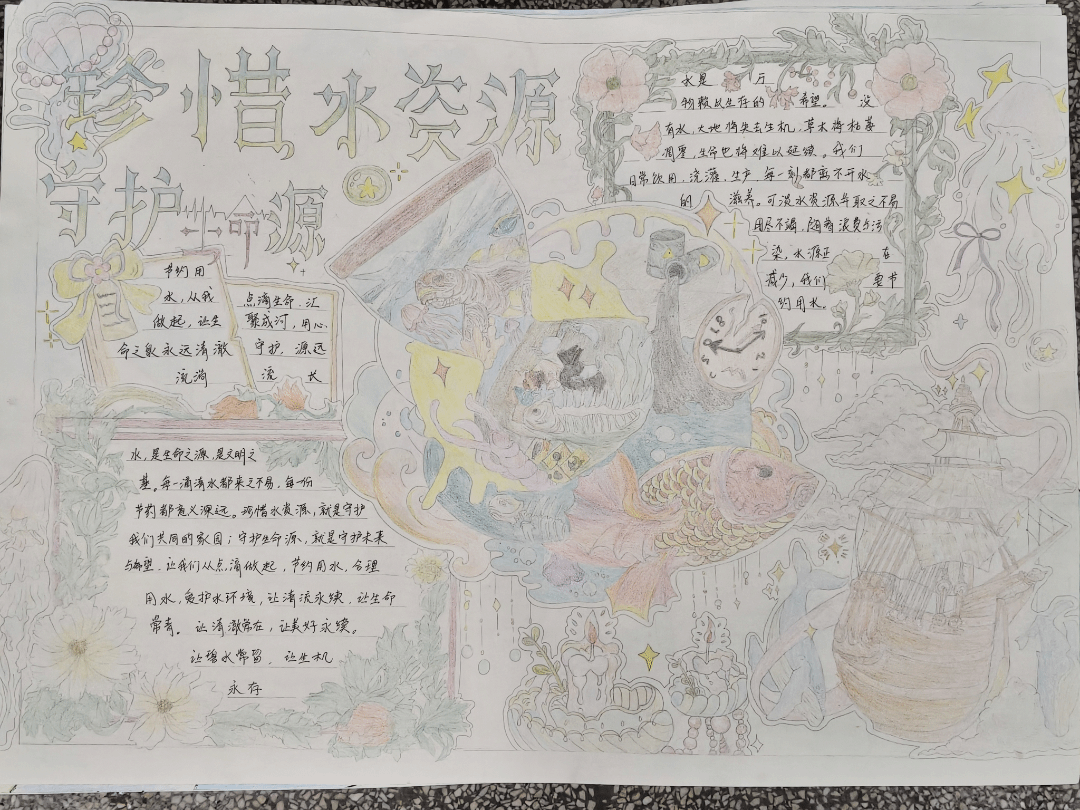 珍惜水资源
守护生命源
节约用
水，从我
做起，让生
命之泉永远清澈
流淌
点滴生命，汇
聚成河，用心
守护，源远
流 长
水是 万
物赖以生存的 希望。 没
有水，大地将失去生机，草木将枯萎
凋零，生命也将难以延续。我们
日常饮用、浇灌、生产，每一刻都离不开水
的 滋养。可淡水资源年取之不易
用尽不满，随着浪费与污
染，水源正 在
减少，我们 要节
约用水。
水，是生命之源，是文明之
基。每一滴清水都来之不易，每一份
节约都意义深远。珍惜水资源，就是守护
我们共同的家园；守护生命源，就是守护未来
与希望。让我们从点滴做起，节约用水，合理
用水，爱护水环境，让清流永续，让生命
常青。让清澈常在，让美好永续。
让碧水常留，让生机
永存